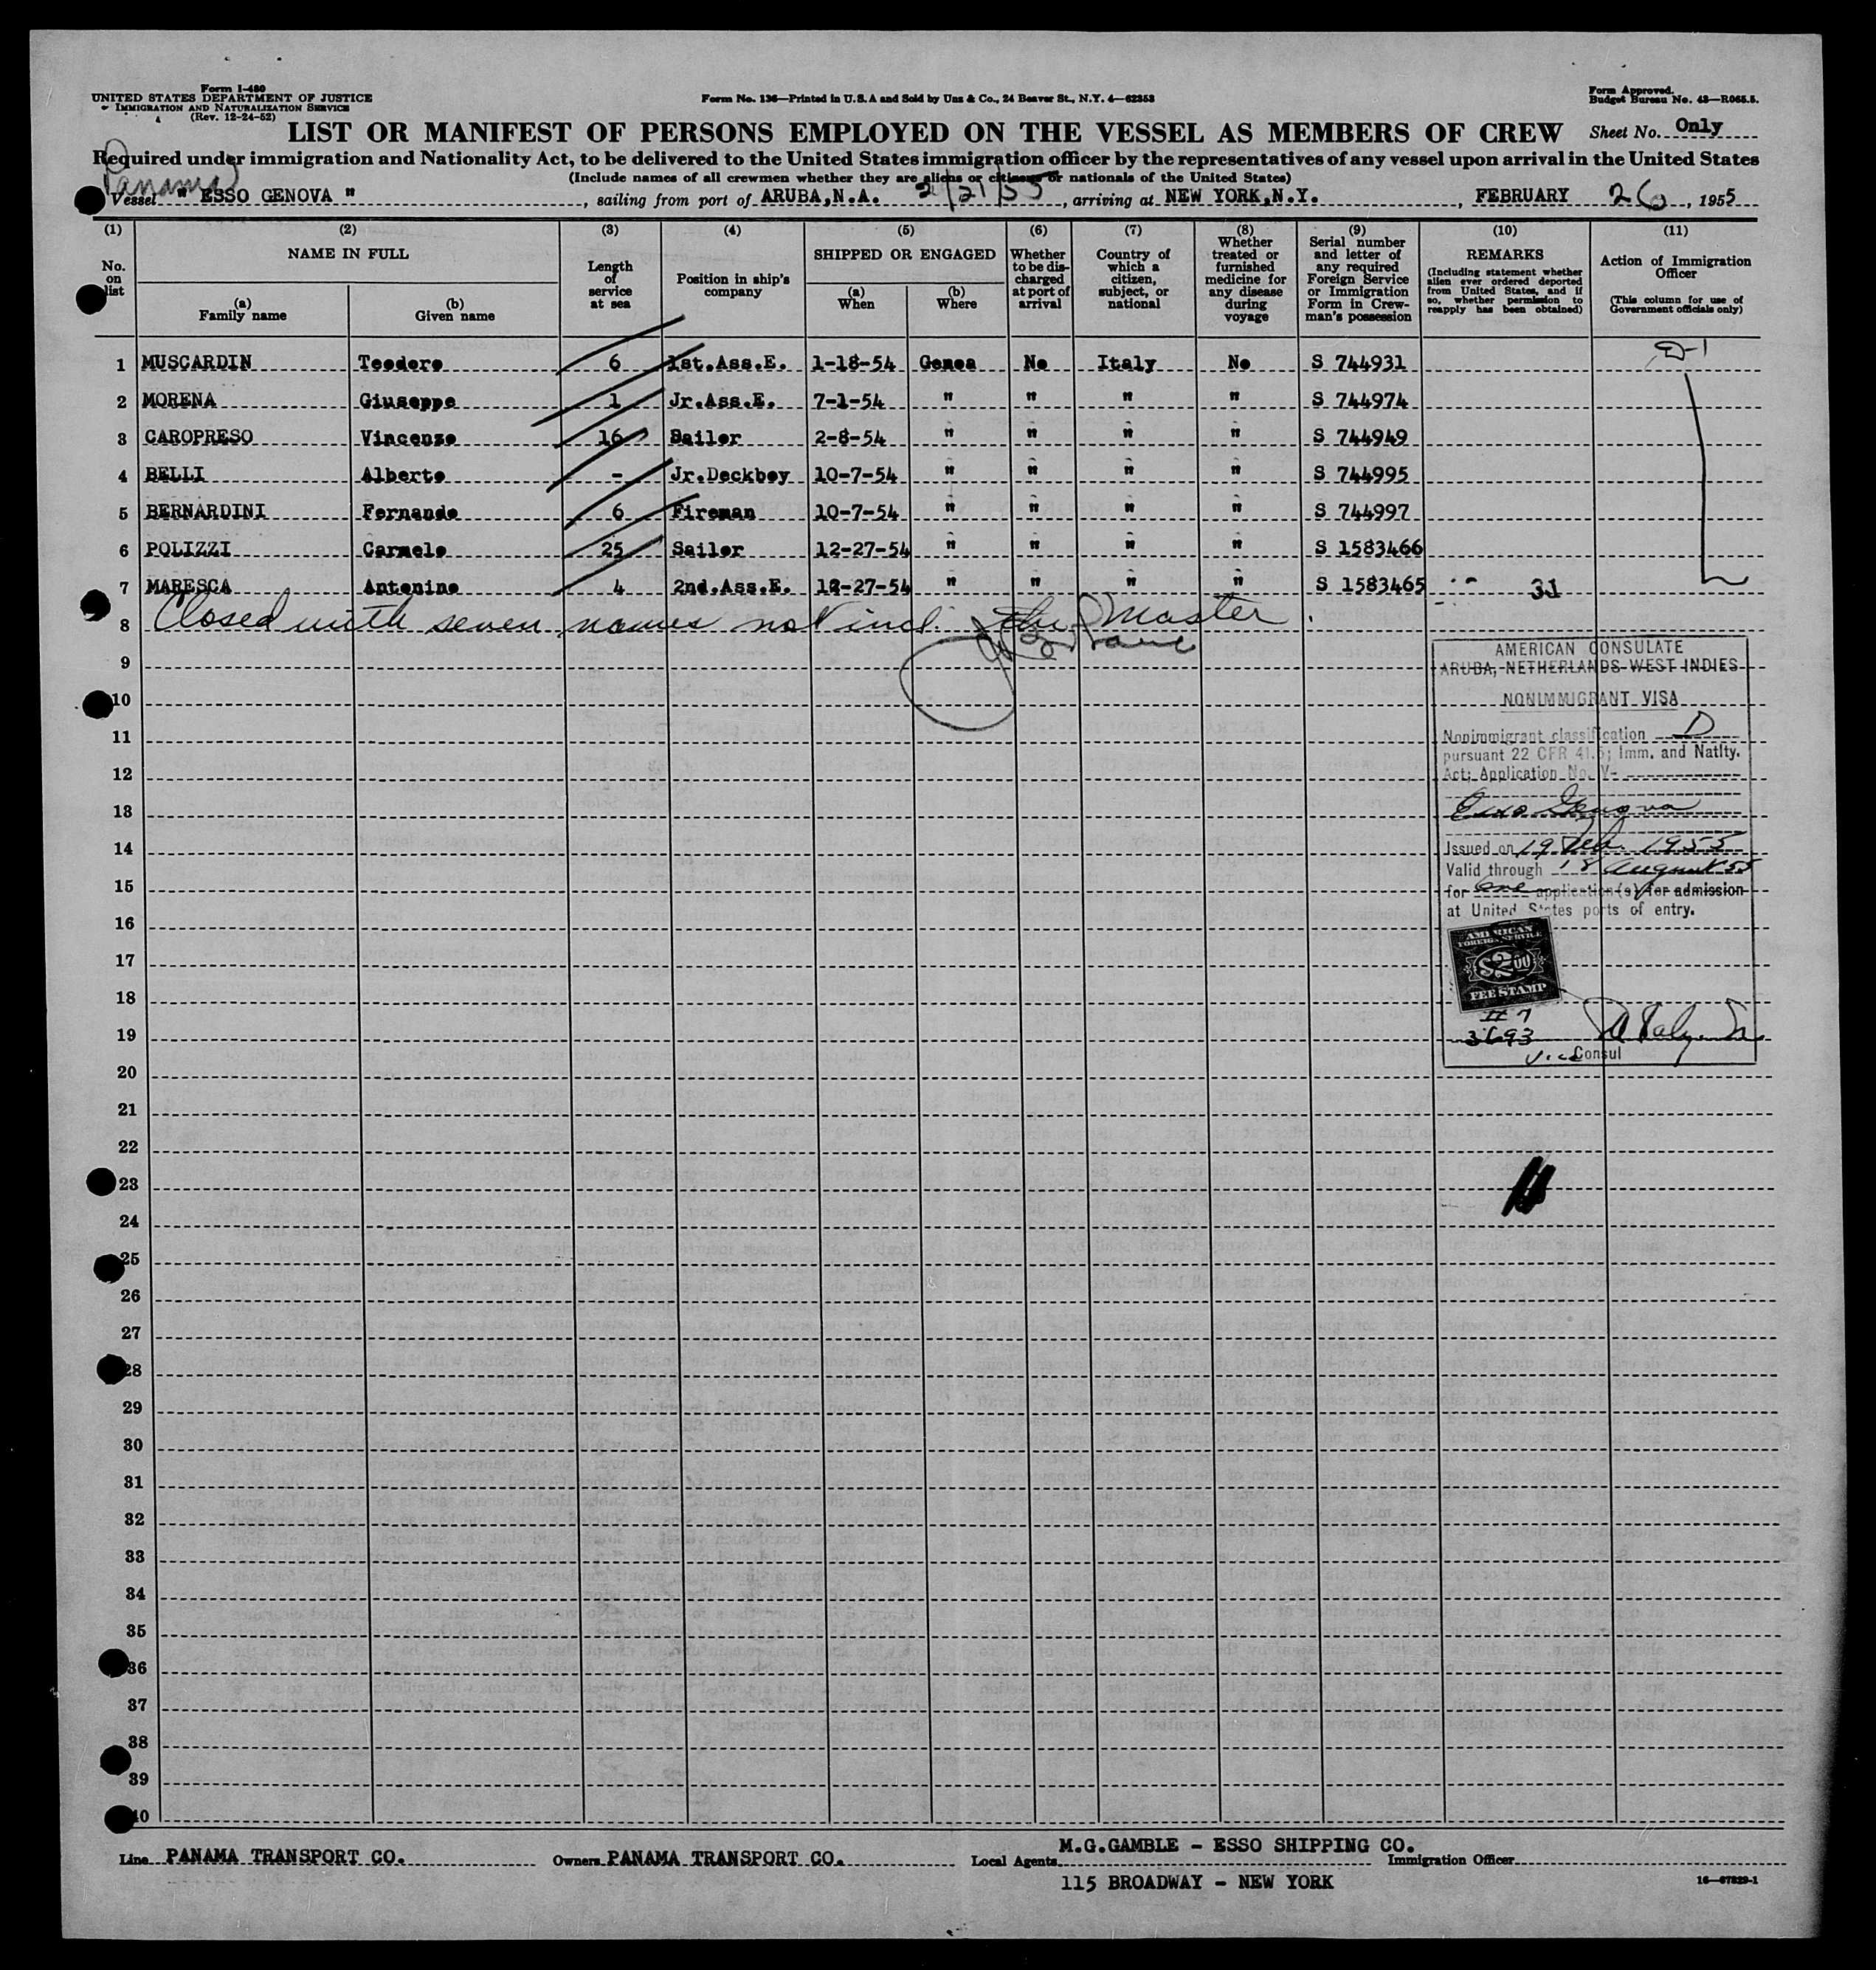 Form I-480
UNITED STATES DEPARTMENT OF JUSTICE
IMMIGRATION AND NATURALIZATION SERVICE
(Rev. 12-24-52)
Form No. 136—Printed in U.S.A and Sold by Unz & Co., 24 Beaver St., N.Y. 4—62353
Form Approved.
Budget Bureau No. 43—R065.5.
LIST OR MANIFEST OF PERSONS EMPLOYED ON THE VESSEL AS MEMBERS OF CREW
Sheet No. Only
Required under immigration and Nationality Act, to be delivered to the United States immigration officer by the representatives of any vessel upon arrival in the United States
(Include names of all crewmen whether they are aliens or citizens or nationals of the United States)
Panama
Vessel " ESSO GENOVA ", sailing from port of ARUBA,N.A. 2/21/55, arriving at NEW YORK,N.Y., FEBRUARY 26, 1955
(1) (2) (3) (4) (5) (6) (7) (8) (9) (10) (11)
No. on list
NAME IN FULL
(a) Family name
(b) Given name
Length of service at sea
Position in ship's company
SHIPPED OR ENGAGED
(a) When
(b) Where
Whether to be discharged at port of arrival
Country of which a citizen, subject, or national
Whether treated or furnished medicine for any disease during voyage
Serial number and letter of any required Foreign Service or Immigration Form in Crewman's possession
REMARKS
(Including statement whether alien ever ordered deported from United States, and if so, whether permission to reapply has been obtained)
Action of Immigration Officer
(This column for use of Government officials only)
1 MUSCARDIN Teodoro 6 1st.Ass.E. 1-18-54 Genoa No Italy No S 744931 D-1
2 MORENA Giuseppe 1 Jr.Ass.E. 7-1-54 " " " " S 744974
3 CAROPRESO Vincenzo 16 Sailor 2-8-54 " " " " S 744949
4 BELLI Alberto - Jr.Deckboy 10-7-54 " " " " S 744995
5 BERNARDINI Fernando 6 Fireman 10-7-54 " " " " S 744997
6 POLIZZI Carmelo 25 Sailor 12-27-54 " " " " S 1583466
7 MARESCA Antonino 4 2nd.Ass.E. 12-27-54 " " " " S 1583465 31
8 Closed with seven names not incl. the Master.
9
10
11
12
13
14
15
16
17
18
19
20
21
22
23
24
25
26
27
28
29
30
31
32
33
34
35
36
37
38
39
40
AMERICAN CONSULATE
ARUBA, NETHERLANDS WEST INDIES
NONIMMIGRANT VISA
Nonimmigrant classification D
pursuant 22 CFR 41.5; Imm. and Natlty.
Act; Application No. V-
Esso Genova
Issued on 19 Feb. 1955
Valid through 18 August 55
for one application(s) for admission
at United States ports of entry.
AMERICAN
FOREIGN SERVICE
$2.00
FEE STAMP
# 7
3693
Vice Consul
Line PANAMA TRANSPORT CO. Owners PANAMA TRANSPORT CO. Local Agents M.G.GAMBLE - ESSO SHIPPING CO. Immigration Officer
115 BROADWAY - NEW YORK
16—67829-1